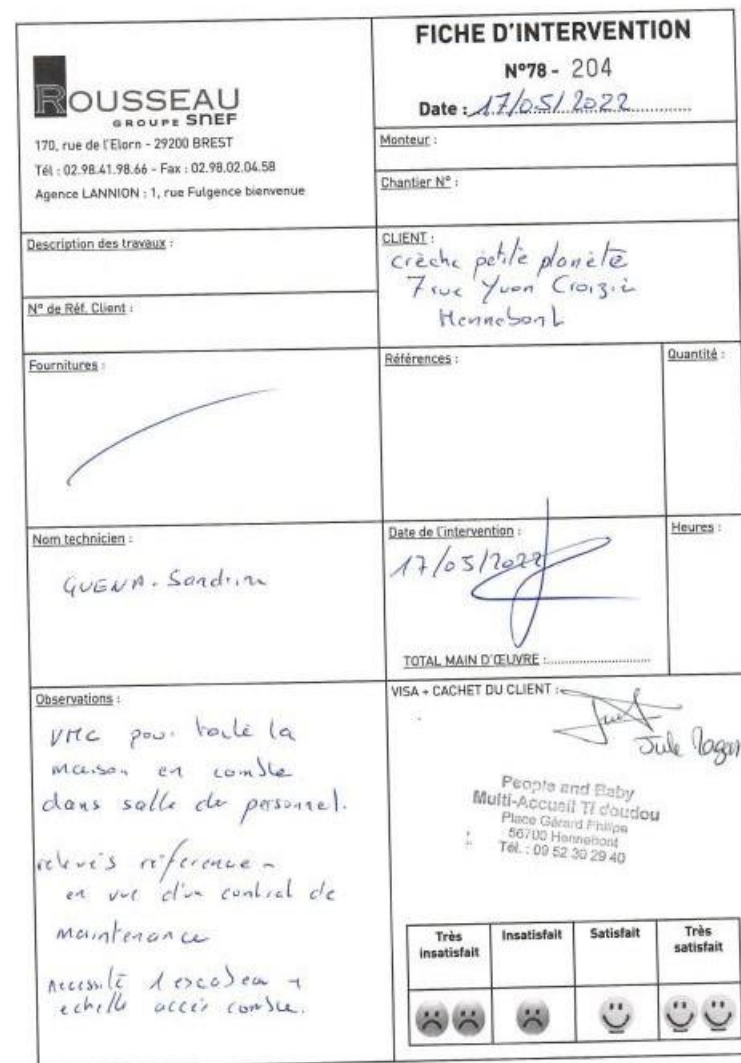 ROUSSEAU
GROUPE SNEF
170, rue de l'Elorn - 29200 BREST
Tél : 02.98.41.98.66 - Fax : 02.98.02.04.58
Agence LANNION : 1, rue Fulgence bienvenue
FICHE D'INTERVENTION
N°78 - 204
Date : 17/05/2022
Monteur :
Chantier N° :
Description des travaux :
N° de Réf. Client :
CLIENT :
crèche petite planète
7 rue Yvon
Hennebont
Fournitures :
Références :
Quantité :
Nom technicien :
GUENA. Sandrine
Date de l'intervention :
17/05/2022
TOTAL MAIN D'ŒUVRE :
Heures :
Observations :
VMC pour toute la
maison en comble
dans salle de personnel.
relevés référence
en vue d'un contrat de
maintenance
necessité 1 escabeau +
echelle accès comble.
VISA + CACHET DU CLIENT :
People and Baby
Multi-Accueil Ti doudou
Place Gérard Philipe
56700 Hennebont
Tél. : 09 52 30 29 40
Très insatisfait
Insatisfait
Satisfait
Très satisfait